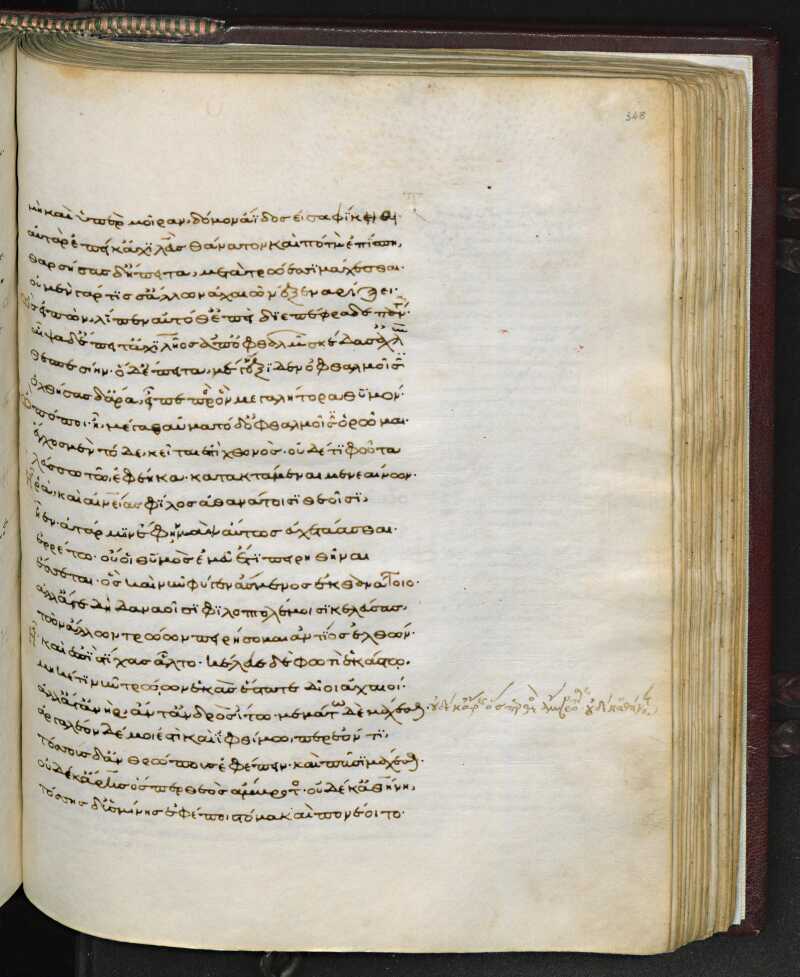 μὴ καὶ ὑπὲρ μοῖραν, δόμον ἄϊδος εἰσαφίκηαι·
αὐτὰρ ἐπεί κ' ἀχϊλεὺς θάνατον καὶ πότμον ἐπίσπη,
θαρσήσας δὴ ἔπειτα, μετὰ πρώτοισϊ μάχεσθαι·
οὐ μὲν γάρ τϊς σ' ἄλλος ἀχαιῶν ἐξεναρίξει·
ὣς εἰπὼν, λίπεν αὐτόθ' ἐπεὶ διεπέφραδε πάντα·
αἶψα δ' ἔπειτ' ἀχϊλῆος ἀπ' ὀφθαλμῶν σκέδασ' ἀχλὺν
θεσπεσίην· ὁ δ' ἔπειτα, μέγ' ἔξϊδεν ὀφθαλμοῖσϊν
ὀχθήσας δ' ἄρα, εἶπε πρὸς ὃν μεγαλήτορα θῡμόν·
ὢ πόποι· ἦ, μέγα θαῦμα τόδ' ὀφθαλμοῖσϊν ὁρῶμαι·
ἔγχος μὲν τόδε κεῖται ἐπὶ χθονὸς· οὐδέ τϊ φῶτα
λεύσσω τῶ, ἐφέηκα· κατακτάμεναι μενεαίνων·
ἦ ῥα, καὶ αἰνείας φίλος ἀθανάτοισϊ θεοῖσϊν,
ἦεν· ἀτάρ μϊν ἔφην, μὰψ αὔτως εὐχετάασθαι·
ἐρρέτω· οὔ οἱ θῡμὸς ἐμεῦ ἔτϊ πειρηθῆναι
ἔσσεται· ὃς καὶ νῦν φύγεν ἄσμενος ἐκ θανάτοιο·
ἀλλ' ἄγε δὴ δαναοῖσϊ φϊλοπτολέμοισϊ κελεύσας,
τῶν ἄλλων τρώων πειρήσομαι ἀντίος ἐλθών·
ἦ· καὶ ἐπὶ στίχας ἆλτο· κέλευε δὲ φωτὶ ἑκάστω·
μηκέτϊ νῦν τρώων ἑκὰς ἕστατε δῖοι ἀχαιοί·
ἀλλ' ἄγ' ἀνὴρ, ἄντ' ἀνδρὸς ἴτω· μεμάτω δὲ μάχεσθαι·
ἀργαλέον δέ μοι ἐστὶ καὶ ἰφθίμω, περ ἐόντϊ·
τόσσους δ' ἀνθρώπους ἐφέπειν· καὶ πᾶσϊ μάχεσθαι· οὐδέ κ' ἄρης ὅσπερ θεὸς ἄμβροτος οὐδέ κ' ἀθήνη
οὐδέ κ' ἄρης ὅσπερ θεὸς ἄμβροτος· οὐδέ κ' ἀθήνη,
τόσσης δ' ὑσμίνης ἐφέποι στόμα καὶ πονέοιτο·
348